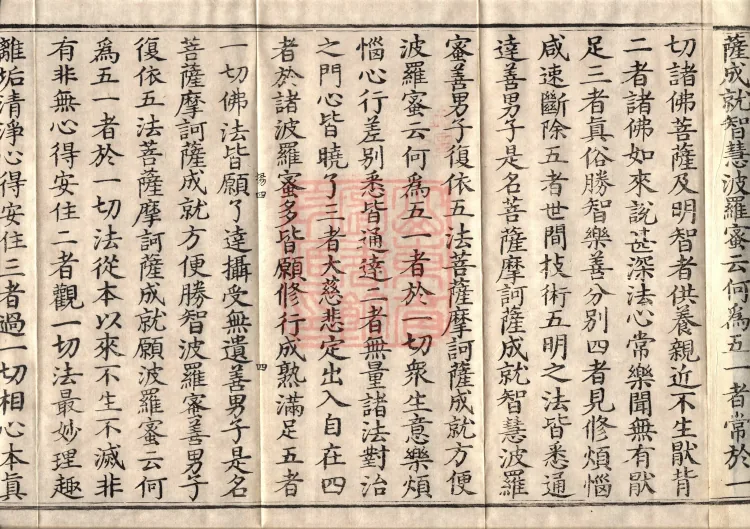 薩成就智慧波羅蜜云何為五一者常於一
切諸佛菩薩及明智者供養親近不生猒背
二者諸佛如來說甚深法心常樂聞無有猒
足三者真俗勝智樂善分別四者見修煩惱
咸速斷除五者世間技術五明之法皆悉通
達善男子是名菩薩摩訶薩成就智慧波羅
蜜善男子復依五法菩薩摩訶薩成就方便
波羅蜜云何為五一者於一切衆生意樂煩
惱心行差別悉皆通達二者無量諸法對治
之門心皆曉了三者大慈悲定出入自在四
者於諸波羅蜜多皆願修行成熟滿足五者
一切佛法皆願了達攝受無遺善男子是名
菩薩摩訶薩成就方便勝智波羅蜜善男子
復依五法菩薩摩訶薩成就願波羅蜜云何
為五一者於一切法從本以來不生不滅非
有非無心得安住二者觀一切法最妙理趣
離垢清淨心得安住三者過一切相心本真